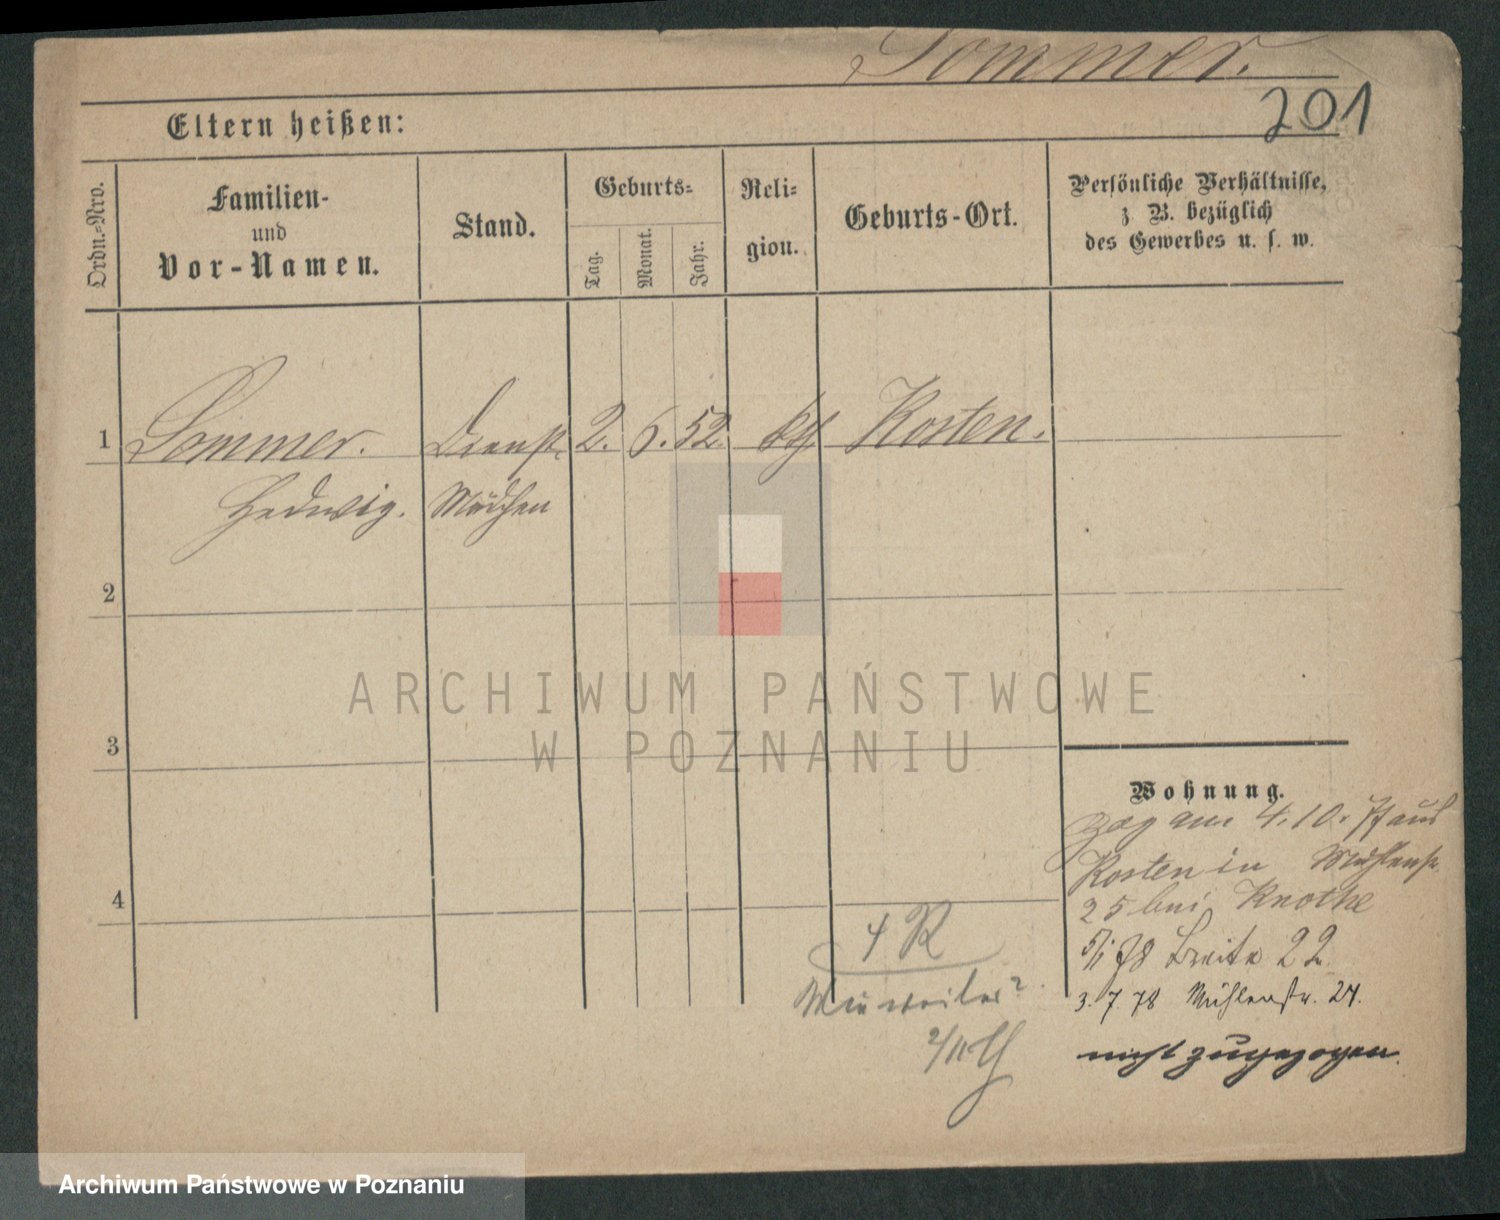 Sommer.
201
Eltern heißen:
Ordn.=Nro.
Familien-
und
Vor-Namen.
Stand.
Geburts=
Tag.
Monat.
Jahr.
Reli=
gion.
Geburts-Ort.
Persönliche Verhältnisse,
z. B. bezüglich
des Gewerbes u. s. w.
1 Sommer. Dienst 2. 6. 52. kth Kosten.
Hedwig. Mädchen
2
3
4
ARCHIWUM PAŃSTWOWE
W POZNANIU
Wohnung.
Zog am 4.10. 77 aus
Kosten in Mühlenstr
25 bei Knothe
5/1 78 Breite 22
3. 7. 78 Mühlenstr. 24.
nicht zugezogen
4 R
2/11
Archiwum Państwowe w Poznaniu